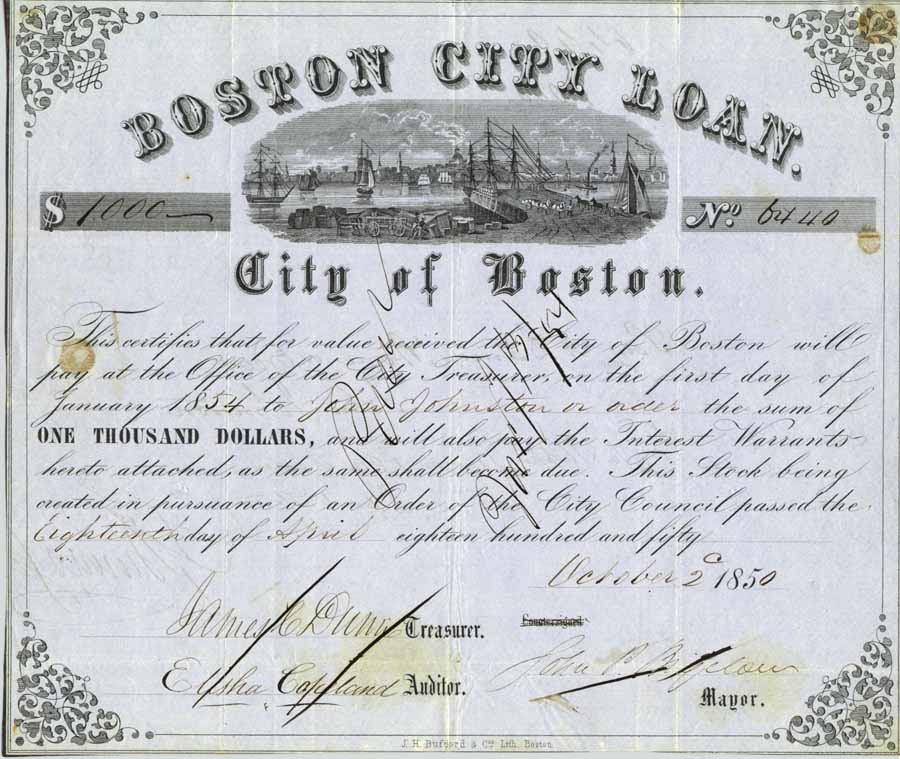 BOSTON CITY LOAN.
$ 1000 No 6440
City of Boston.
This certifies that for value received the City of Boston will
pay at the Office of the City Treasurer, on the first day of
January 1854 to John Johnston or order the sum of
ONE THOUSAND DOLLARS, and will also pay the Interest Warrants
hereto attached, as the same shall become due. This Stock being
created in pursuance of an Order of the City Council passed the
Eighteenth day of April eighteen hundred and fifty
October 2d 1850
James C Dunn Treasurer. Countersigned
Elisha Copeland Auditor. John P. Bigelow
Mayor.
J. H. Bufford & Co. Lith. Boston.